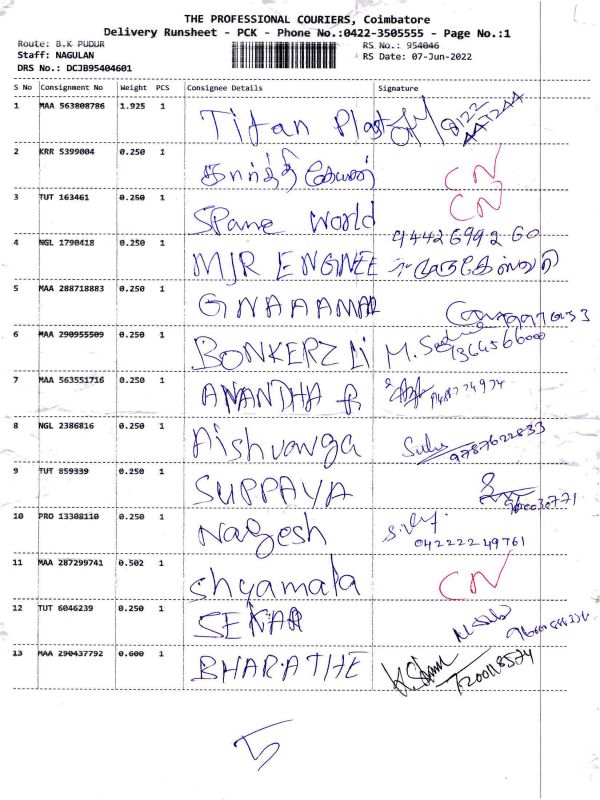 THE PROFESSIONAL COURIERS, Coimbatore
Delivery Runsheet - PCK - Phone No.:0422-3505555 - Page No.:1
Route: B.K PUDUR RS No.: 954046
Staff: NAGULAN RS Date: 07-Jun-2022
DRS No.: DCJB95404601
S No Consignment No Weight PCS Consignee Details Signature
1 MAA 563808786 1.925 1 Titan
2 KRR 5399004 0.250 1 CN
3 TUT 163461 0.250 1 Spane World CN
4 NGL 1790418 0.250 1 MJR ENGINEE 9442699260
5 MAA 288718883 0.250 1 GNAAAMAL
6 MAA 290955509 0.250 1 BONKERZ Li
7 MAA 563551716 0.250 1 ANANTHA
8 NGL 2386816 0.250 1 Aishvarya 9787622833
9 TUT 859339 0.250 1 SUPPAYA
10 PRO 13308110 0.250 1 Nagesh 04222249761
11 MAA 287299741 0.502 1 Shyamala CN
12 TUT 6046239 0.250 1 SEKAR
13 MAA 290437792 0.600 1 BHARATHE
5